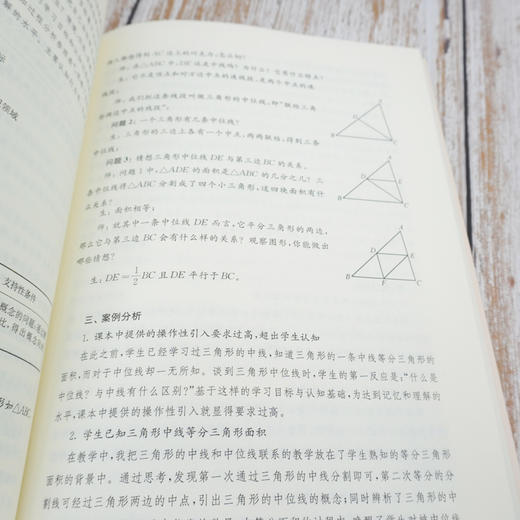 师：在△ABC中，DE这是中线吗？为什么？它有什么特点？
生：它不是顶点和对边中点的连线段，是两个中点的连
线段。
师：我们把这条线段叫做三角形的中位线，即“联结三角
形两边中点的线段”。
问题2：一个三角形有几条中位线？
生：三角形的三边上各有一个中点，两两联结，得到三条
中位线。
问题3：猜想三角形中位线DE与第三边BC的关系。
师：问题1中，△ADE的面积是△ABC的几分之几？三
条中位线将△ABC分割成了四个小三角形，这四块面积有什
么关系？
生：面积相等；
师：就其中一条中位线DE而言，它平分三角形的两边，
那么它与第三边BC会有什么样的关系？观察图形，你能做出
哪些猜想？
生：DE=1/2BC且DE平行于BC。
A
B
C
A
E
B
C
A
D
E
B
F
C
三、案例分析
1. 课本中提供的操作性引入要求过高，超出学生认知
在此之前，学生已经学习过三角形的中线，知道三角形的一条中线等分三角形的
面积，而对于中位线却一无所知。谈到三角形中位线时，学生的第一反应是：“什么是
中位线？与中线有什么区别？”基于这样的学习目标与认知基础，为达到记忆和理解的
水平，课本中提供的操作性引入就显得要求过高。
2. 学生已知三角形中线等分三角形面积
在教学中，我把三角形的中线和中位线联系的教学放在了学生熟知的等分三角形
面积的背景中。通过思考，发现第一次通过三角形的中线分割即可，第二次等分的分
割线可经过三角形两边的中点，引出三角形的中位线的概念；同时辨析了三角形的中
支持性条件
概念的问题，通过
比，得出概念
形如△ABC
领域